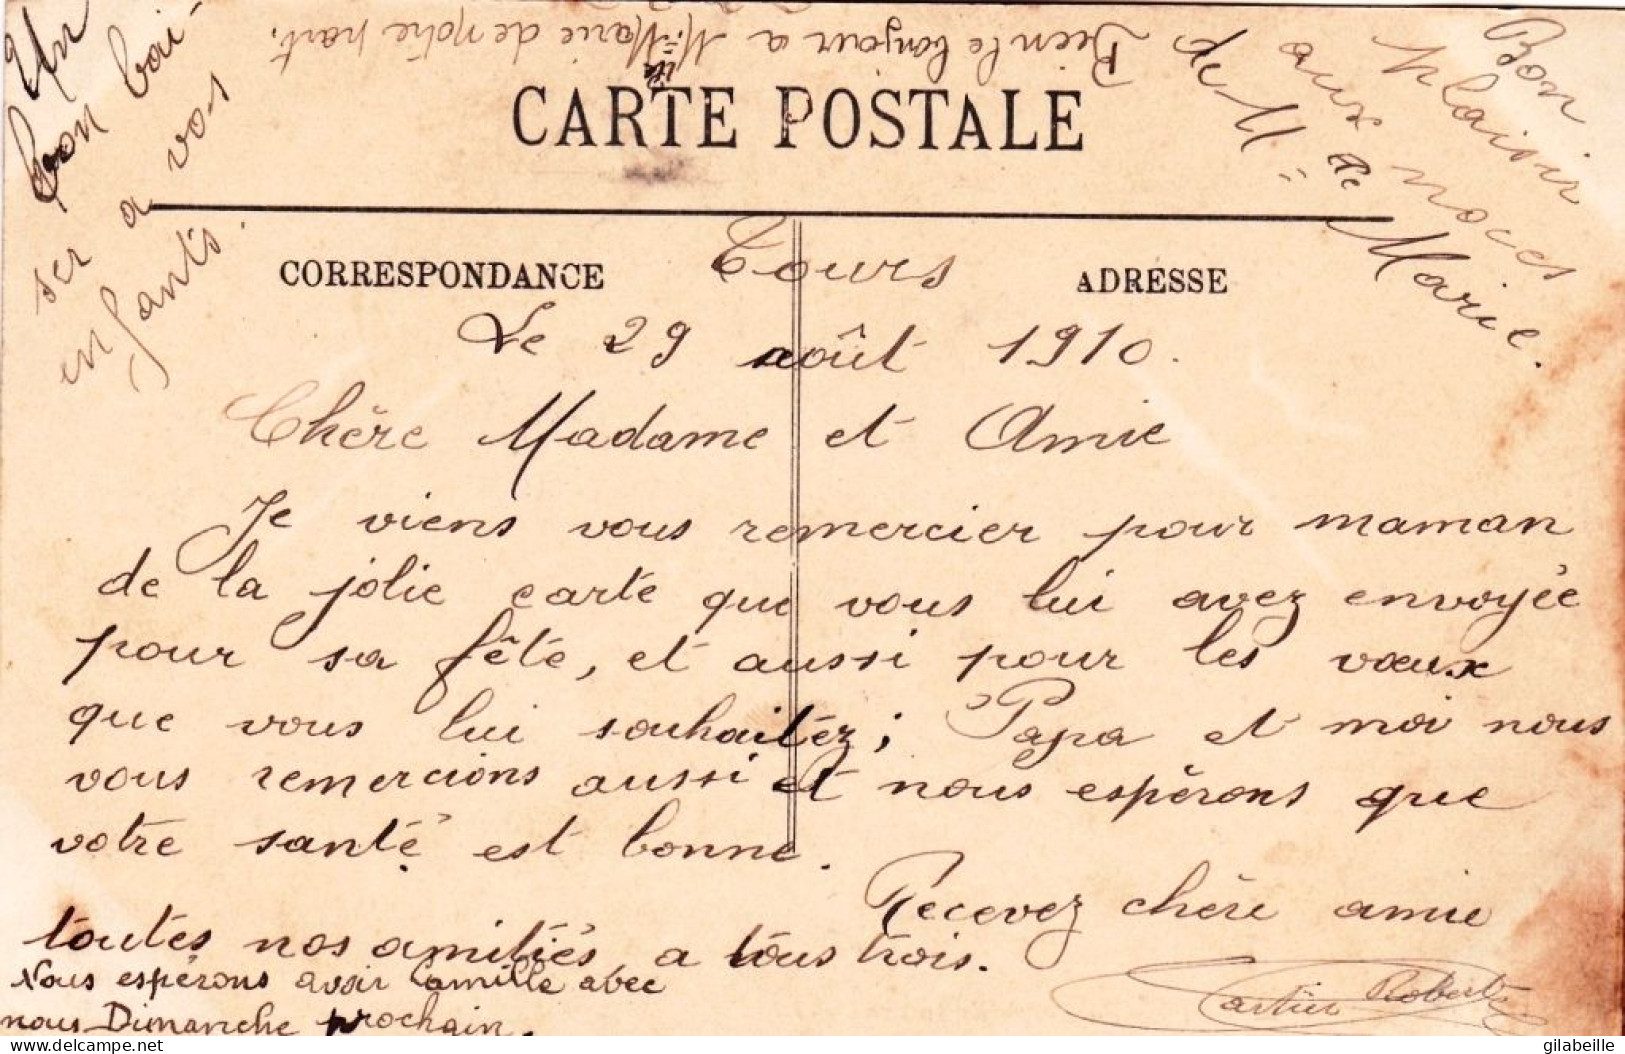 Un
bon bai
ser a vos
enfants.
Bien le bonjour a Mlle Marie de notre part.
Bon
plaisir
aux noces
de Mlle
Marie.
CARTE POSTALE
CORRESPONDANCE
ADRESSE
Tours
Le 29 août 1910.
Chère Madame et Amie
Je viens vous remercier pour maman
de la jolie carte que vous lui avez envoyée
pour sa fête, et aussi pour les vœux
que vous lui souhaitéz; Papa et moi nous
vous remercions aussi et nous espèrons que
votre santé est bonne.
Recevez chère amie
toutes nos amitiés a tous trois.
Nous espérons avoir Camille avec
nous Dimanche prochain.
Cartier Robert
delcampe.net
gilabeille